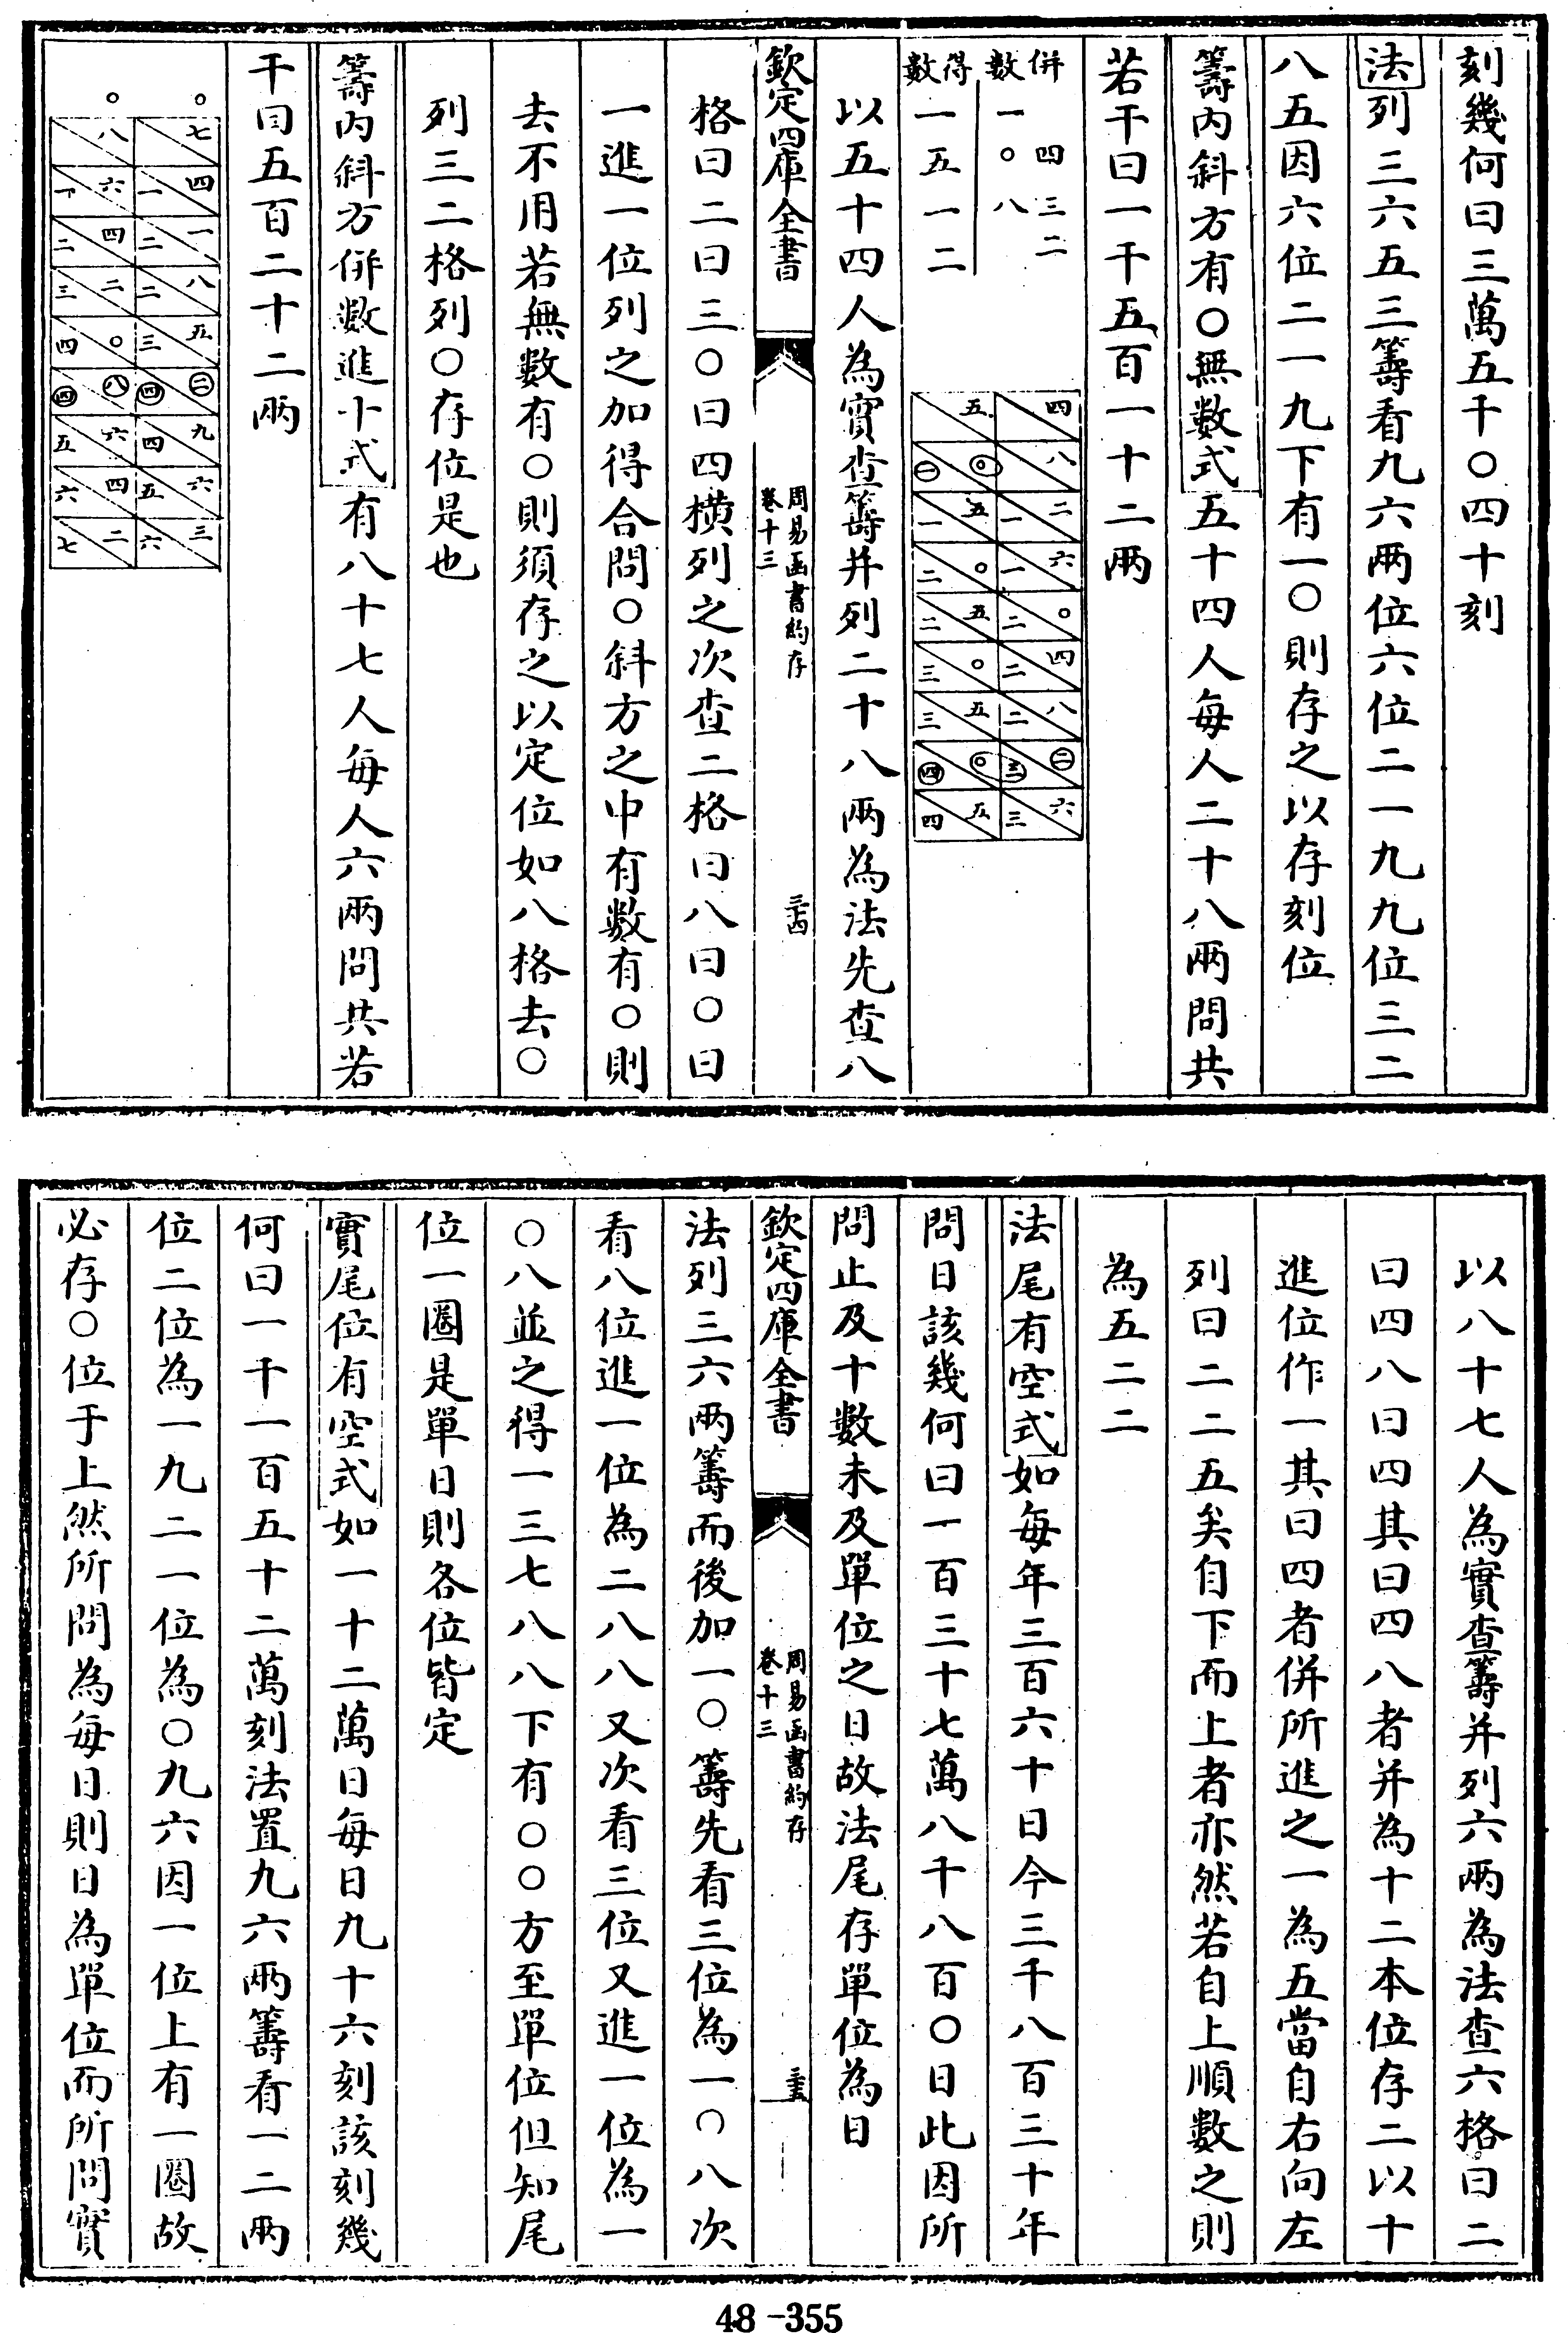 刻幾何曰三萬五千〇四十刻
法列三六五三籌看九六兩位六位二一九九位三二
八五因六位二一九下有一〇則存之以存刻位
籌內斜方有〇無數式五十四人每人二十八兩問共
若干曰一千五百一十二兩
併數 四三二
一〇八
得數一五一二
四 五
八 〇一
二一 五一
六一 〇二
〇二 五二
四二 〇三
八二 五三
二三 〇四
六三 五四
以五十四人為實查籌并列二十八兩為法先查八
格曰二曰三〇曰四橫列之次查二格曰八曰〇曰
一進一位列之加得合問〇斜方之中有數有〇則
去不用若無數有〇則須存之以定位如八格去〇
列三二格列〇存位是也
籌內斜方併數進十式有八十七人每人六兩問共若
干曰五百二十二兩
〇 〇
七 八
四一 六一
一二 四二
八二 二三
五三 〇四
二四 八四
九四 六五
六五 四六
三六 二七
欽定四庫全書
周易函書約存
卷十三
三四
以八十七人為實查籌并列六兩為法查六格曰二
曰四八曰四其曰四八者并為十二本位存二以十
進位作一其曰四者併所進之一為五當自右向左
列曰二二五矣自下而上者亦然若自上順數之則
為五二二
法尾有空式如每年三百六十日今三千八百三十年
問日該幾何曰一百三十七萬八千八百〇日此因所
問止及十數未及單位之日故法尾存單位為日
法列三六兩籌而後加一〇籌先看三位為一〇八次
看八位進一位為二八八又次看三位又進一位為一
〇八並之得一三七八八下有〇〇方至單位但知尾
位一圈是單日則各位皆定
實尾位有空式如一十二萬日每日九十六刻該刻幾
何曰一千一百五十二萬刻法置九六兩籌看一二兩
位二位為一九二一位為〇九六因一位上有一圈故
必存〇位于上然所問為每日則日為單位而所問實
欽定四庫全書
周易函書約存
卷十三
三五
48-355